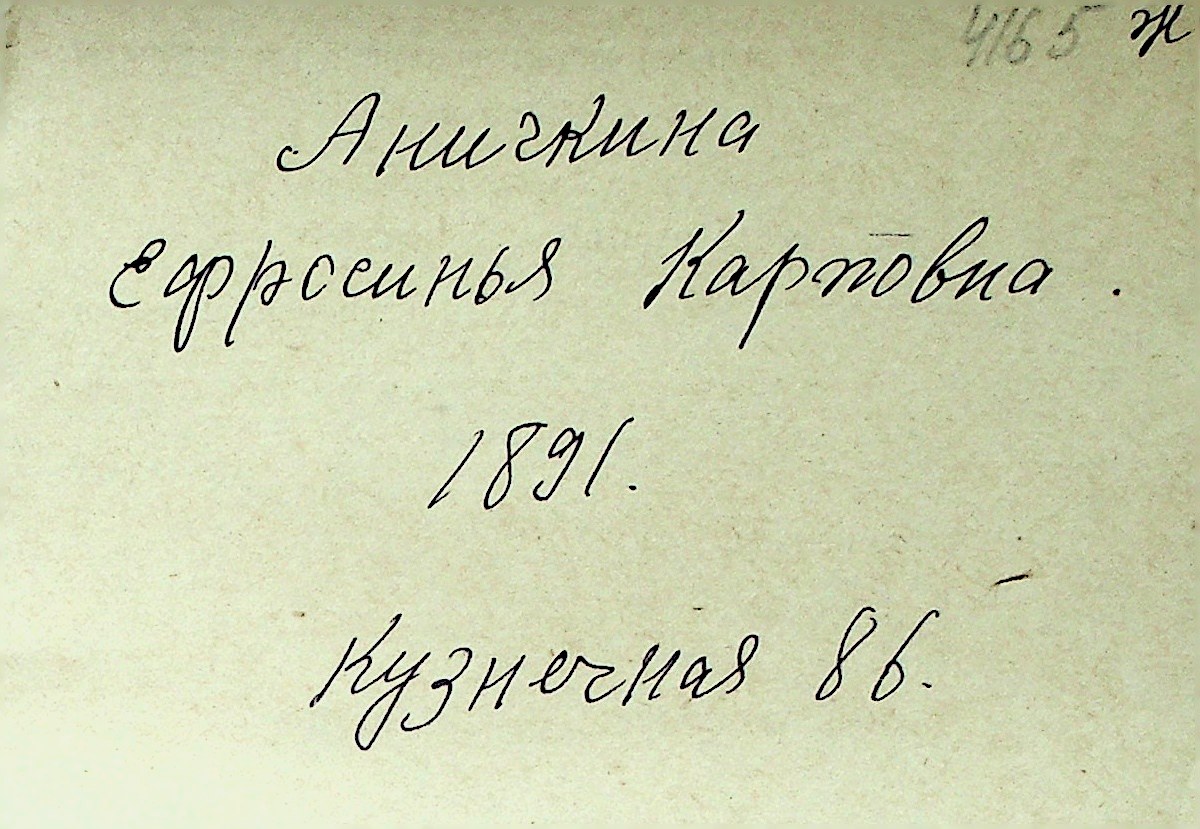 4165 ж
Аничкина
Ефросинья Карповна.
1891.
Кузнечная 86.